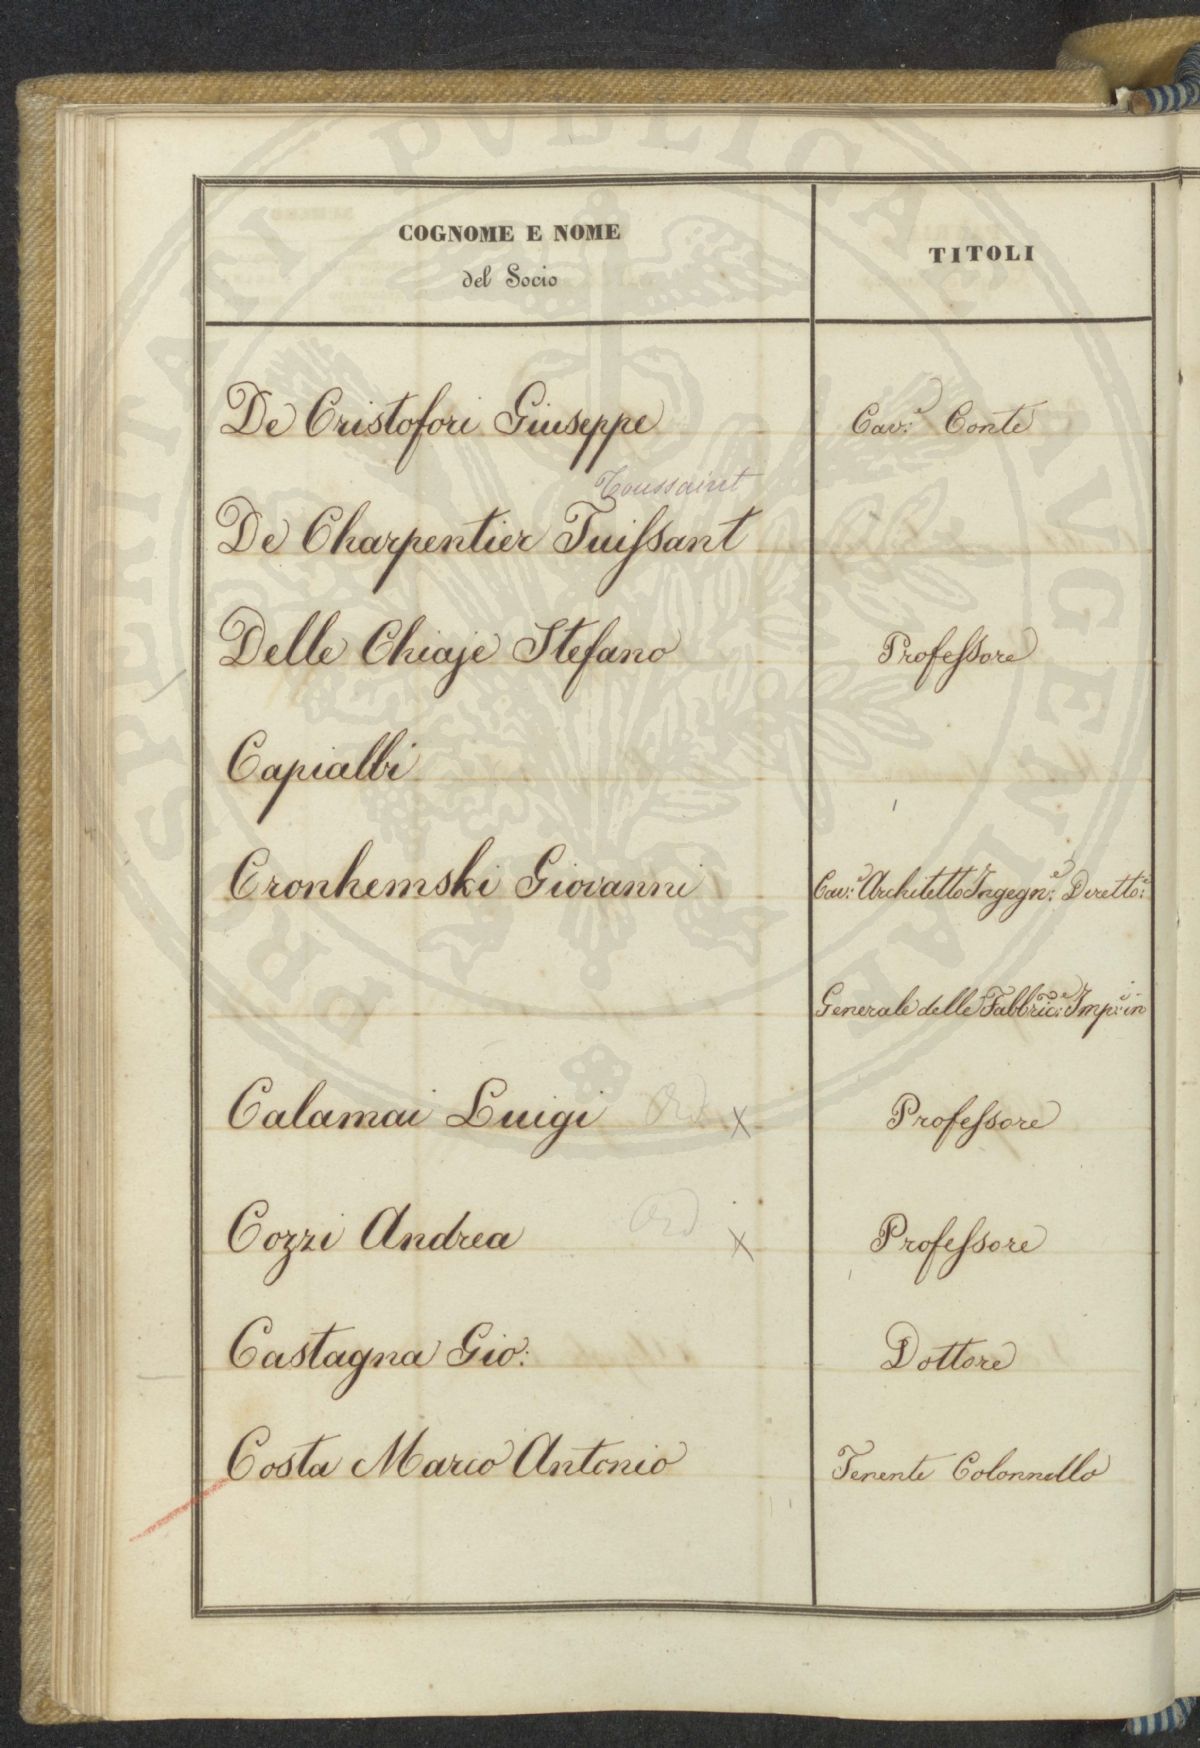 COGNOME E NOME
del Socio
TITOLI
De Cristofori Giuseppe Cav:e Conte
Toussaint
De Charpentier Tuissant
Delle Chiaje Stefano Professore
Capialbi
Cronhemski Giovanni Cav:e Architetto Ingegn:e Diretto:e
Generale delle Fabbric:e Imp:i in
Calamai Luigi Ord x Professore
Cozzi Andrea Ord x Professore
Castagna Gio: Dottore
Costa Marco Antonio Tenente Colonnello
PROSPERITATI PVBLICAE AVGENDAE